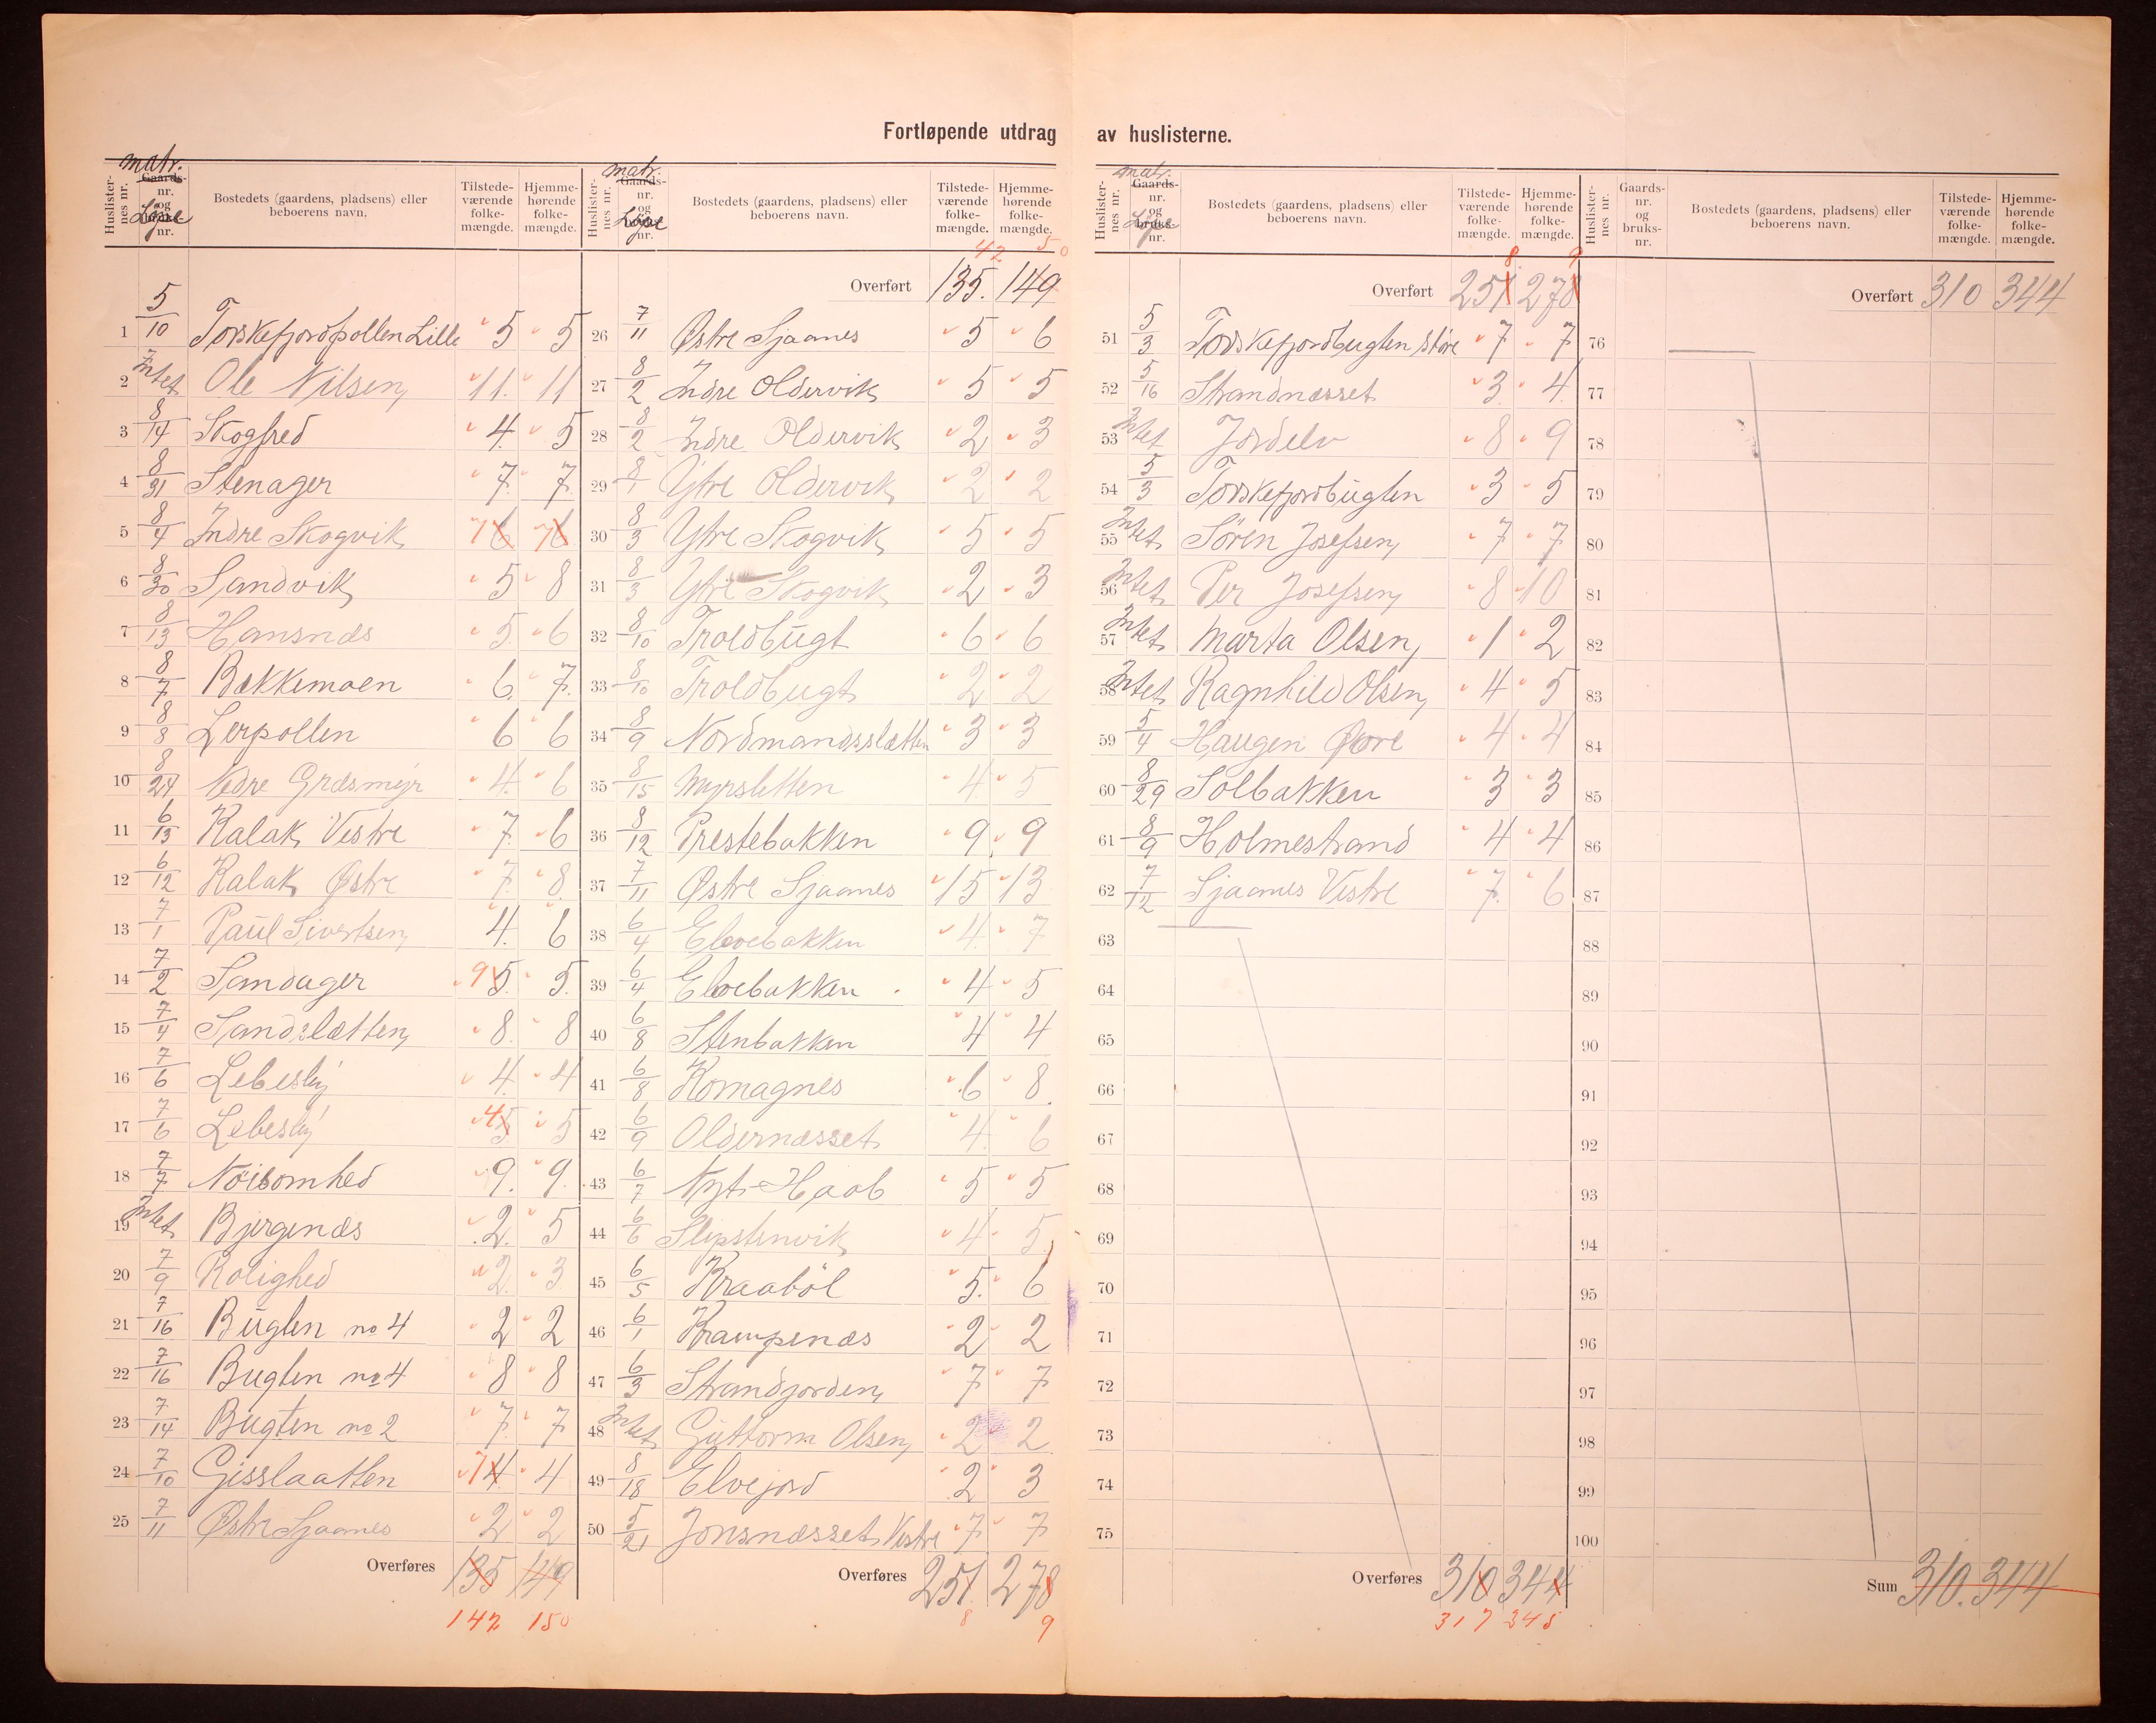 Fortløpende utdrag av huslisterne.
matr.
Huslister-nes nr. Gaards-nr. og Løpe nr. Bostedets (gaardens, pladsens) eller beboerens navn. Tilstede-værende folke-mængde. Hjemme-hørende folke-mængde.
1 5/10 Torskefjordpollen Lille 5 5
2 Intet Ole Nilsen 11. 11
3 8/14 Skogfred 4. 5
4 8/31 Stenager 7. 7.
5 8/4 Indre Skogvik 7 6 7 6
6 8/30 Sandvik 5 8
7 8/13 Hansnæs 5. 6
8 8/7 Bækkemoen 6. 7.
9 8/8 Lerpollen 6 6
10 8/24 Nedre Græsmyr 4. 6
11 6/13 Kalak Vestre 7. 6
12 6/12 Kalak Østre 7. 8
13 7/1 Paul Sivertsen 4. 6
14 7/2 Sandager 9 5. 5.
15 7/4 Sandslætten 8. 8
16 7/6 Lebesby 4. 4
17 7/6 Lebesby 4 5 5
18 7/7 Nöisomhed 9. 9.
19 Intet Bjergenæs 2. 5
20 7/9 Rolighed 2. 3
21 7/16 Bugten no 4 2 2
22 7/16 Bugten no 4 8 8
23 7/14 Bugten no 2 7. 7
24 7/10 Gisslaatten 7 4 4
25 7/11 Østre Sjaanes 2 2
Overføres 135 149
142 150
matr.
Huslister-nes nr. Gaards-nr. og Løpe nr. Bostedets (gaardens, pladsens) eller beboerens navn. Tilstede-værende folke-mængde. Hjemme-hørende folke-mængde.
42 50
Overført 135. 149
26 7/11 Østre Sjaanes 5 6
27 8/2 Indre Oldervik 5 5
28 8/2 Indre Oldervik 2 3
29 8/1 Ytre Oldervik 2 2
30 8/3 Ytre Skogvik 5 5
31 8/3 Ytre Skogvik 2 3
32 8/10 Troldbugt 6 6
33 8/10 Troldbugt 2 2
34 8/9 Nordmandsslætten 3 3
35 8/15 Myrsletten 4. 5
36 8/12 Prestebakken 9. 9
37 7/11 Østre Sjaanes 15 13
38 6/4 Elvebakken 4. 7
39 6/4 Elvebakken 4 5
40 6/8 Stenbakken 4 4
41 6/8 Komagnes 6 8.
42 6/9 Oldernæsset 4. 6
43 6/7 Nyt-Haab 5 5
44 6/6 Slipstenvik 4 5.
45 6/5 Kraaböl 5. 6
46 6/1 Krampenæs 2 2
47 6/3 Strandjorden 7 7
48 Intet Guttorm Olsen 2 2
49 8/18 Elvejord 2 3
50 5/21 Jonsnæsset Vestre 7 7
Overføres 251. 278
8 9
matr.
Huslister-nes nr. Gaards-nr. og bruks-nr. Bostedets (gaardens, pladsens) eller beboerens navn. Tilstede-værende folke-mængde. Hjemme-hørende folke-mængde.
8 9
Overført 251 278
51 5/3 Torskefjordbugten store 7 7
52 5/16 Strandnæsset 3. 4.
53 Intet Jordelv 8 9
54 5/3 Torskefjordbugten 3 5
55 Intet Sören Josefsen 7 7
56 Intet Per Josefsen 8 10
57 Intet Marta Olsen 1 2
58 Intet Ragnhild Olsen 4 5
59 5/4 Haugen Øvre 4 4
60 8/29 Solbakken 3 3
61 8/9 Holmestrand 4 4
62 7/12 Sjaanes Vestre 7. 6
63
64
65
66
67
68
69
70
71
72
73
74
75
Overføres 310 344
317 345
Huslister-nes nr. Gaards-nr. og bruks-nr. Bostedets (gaardens, pladsens) eller beboerens navn. Tilstede-værende folke-mængde. Hjemme-hørende folke-mængde.
Overført 310 344
76
77
78
79
80
81
82
83
84
85
86
87
88
89
90
91
92
93
94
95
96
97
98
99
100
Sum 310. 344